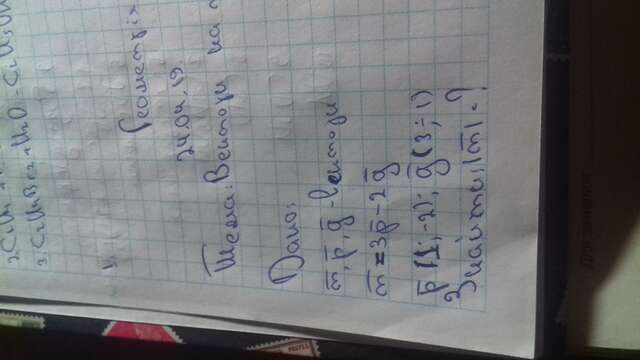 Геометрія
24.04.19
Тема: Вектори на
Дано:
m̅, p̅, g̅ - вектори
m̅ = 3p̅ - 2g̅
p̅ (1; -2); g̅ (3; 1)
Знайти: |m̅| - ?